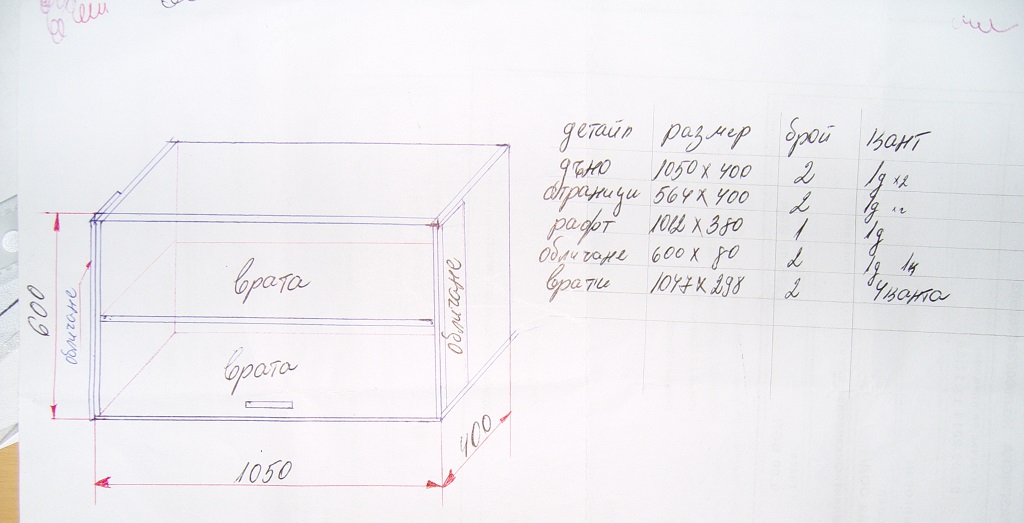 детайл размер брой кант
дъно 1050 х 400 2 1д х2
страници 564 х 400 2 1д
рафт 1012 х 380 1 1д
обличане 600 х 80 2 1д 1к
врати 1047 х 298 2 4 канта
врата
врата
обличане
обличане
600
1050
400